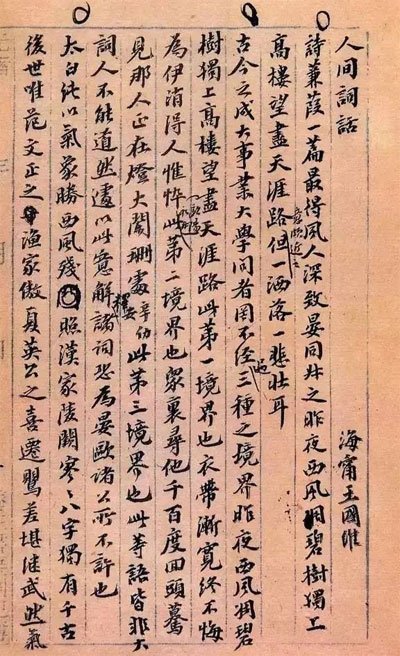 人间詞話 海甯王國維
詩蒹葭一篇最得風人深致晏同叔之昨夜西風凋碧樹獨上
高樓望盡天涯路意頗近之但一洒落一悲壯耳
古今之成大事業大學問者罔不經過三種之境界昨夜西風凋碧
樹獨上高樓望盡天涯路此第一境界也衣帶漸寬終不悔
為伊消得人憔悴此第二境界也眾裏尋他千百度回頭驀
見那人正在燈火闌珊處辛幼安此第三境界也此等語皆非大
詞人不能道然遽以此意解諸詞恐為晏歐諸公所不許也
太白純以氣象勝西風殘照漢家陵闕寥〻八字獨有千古
後世唯范文正之漁家傲夏英公之喜遷鶯差堪繼武然氣